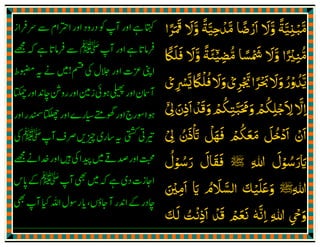 مَّبْنِيَّةً وَّلَا اَرْضًا مَّدْحِيَّةً وَّلَا قَمَرًا
مُّنِيْرًا وَّلَا شَمْسًا مُّضِيْٓئَةً وَّلَا فَلَكًا
يَّدُوْرُ وَلَا بَحْرًا يَّجْرِيْ وَلَا فُلْكًا يَّسْرِيْ
اِلَّا لِاَجْلِكُمْ وَمَحَبَّتِكُمْ وَقَدْ اَذِنَ لِيْٓ
اَنْ اَدْخُلَ مَعَكُمْ فَهَلْ تَأْذَنُ لِيْ
يَا رَسُوْلَ اللّٰهِ ﷺ فَقَالَ رَسُوْلُ
اللّٰهِ ﷺ وَعَلَيْكَ السَّلَامُ يَا اَمِيْنَ
وَحْيِ اللّٰهِ اِنَّهٗ نَعَمْ قَدْ اَذِنْتُ لَكَ
کہتا ہے اور آپ کو درود اور احترام سے سرفراز
فرماتا ہے اور آپ ﷺ سے فرماتا ہے کہ مجھے
اپنی عزت اور جلال کی قسم! میں نے یہ مضبوط
آسمان اور پھیلی ہوئی زمین اور روشن چاند اور چمکتا
ہوا سورج اور گھومتے سیارے اور چھلکتا سمندر اور
تیرتی کشتی یہ ساری چیزیں صرف آپ ﷺ کی
محبت اور صدقے میں پیدا کی ہیں اور خدا نے مجھے
اجازت دی ہے کہ میں بھی آپ ﷺ کے پاس
چادر کے اندر آ جاؤں، یا رسول اللہ کیا آپ بھی